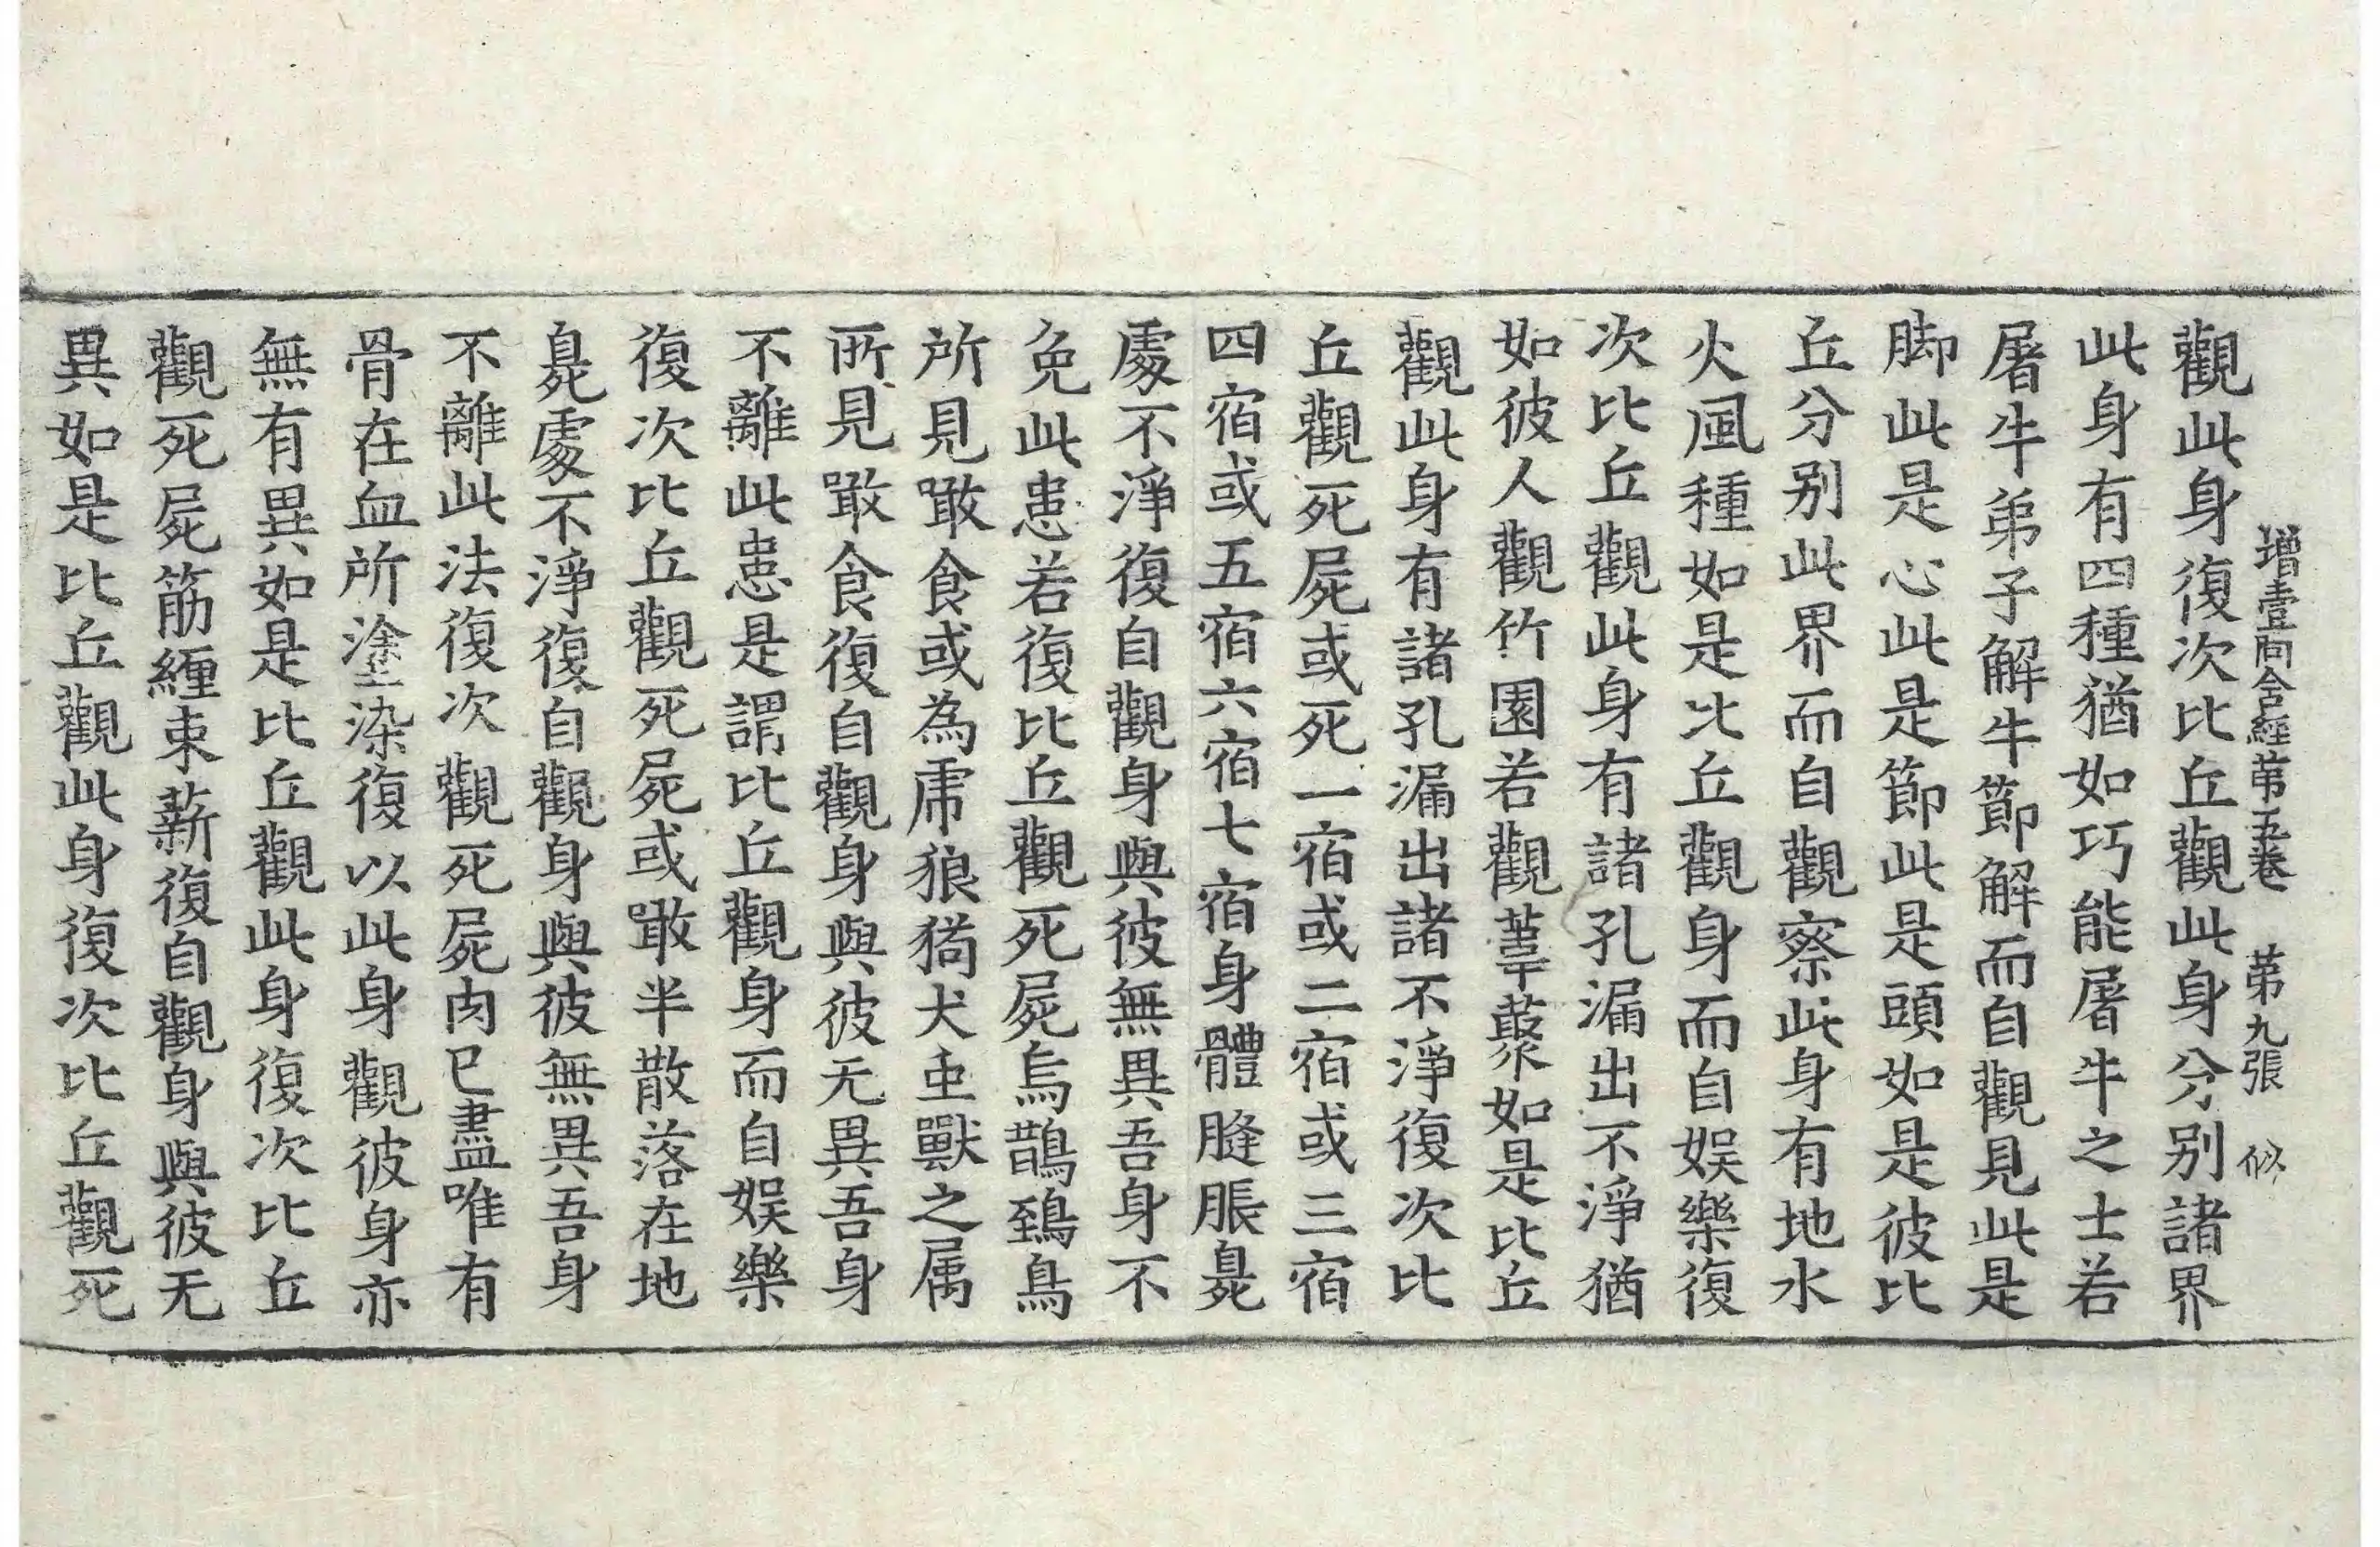 增壹阿含經第五卷　第九張　似
觀此身復次比丘觀此身分别諸界
此身有四種猶如巧能屠牛之士若
屠牛弟子解牛節解而自觀見此是
脚此是心此是節此是頭如是彼比
丘分别此界而自觀察此身有地水
火風種如是比丘觀身而自娱樂復
次比丘觀此身有諸孔漏出不淨猶
如彼人觀竹園若觀葦藂如是比丘
觀此身有諸孔漏出諸不淨復次比
丘觀死屍或死一宿或二宿或三宿
四宿或五宿六宿七宿身體膖脹臰
處不淨復自觀身與彼無異吾身不
免此患若復比丘觀死屍烏鵲鵄鳥
所見噉食或為虎狼狗犬虫獸之属
所見噉食復自觀身與彼无異吾身
不離此患是謂比丘觀身而自娱樂
復次比丘觀死屍或噉半散落在地
臰處不淨復自觀身與彼無異吾身
不離此法復次觀死屍肉已盡唯有
骨在血所塗染復以此身觀彼身亦
無有異如是比丘觀此身復次比丘
觀死屍筋纏束薪復自觀身與彼无
異如是比丘觀此身復次比丘觀死